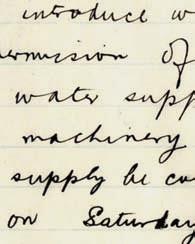 introduce w
ermission of
water supp
machinery
supply be co
on Saturday